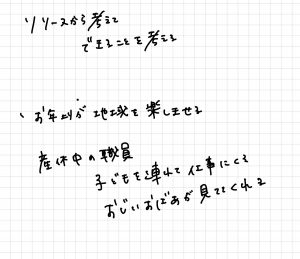 リソースから考えて
できることを考える
、お年よりが地球を楽しませる
産休中の職員
子どもを連れて仕事にくる
おじいおばあが見ててくれる